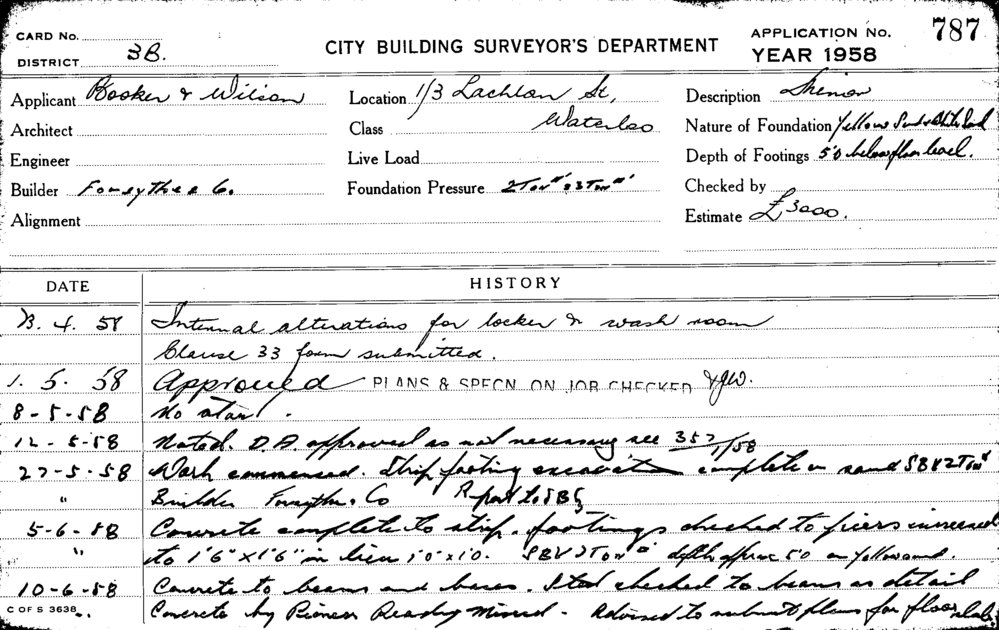 CARD No.
DISTRICT 3B.
CITY BUILDING SURVEYOR'S DEPARTMENT
APPLICATION No. 787
YEAR 1958
Applicant Booker & Wilson
Location 1/3 Lachlan St,
Waterloo
Description
Architect
Class
Nature of Foundation Yellow Sand & White Sand
Engineer
Live Load
Depth of Footings 5'0 below floor level.
Builder Forsythe & Co.
Foundation Pressure 2 Ton
Checked by
Alignment
Estimate £3000.
DATE HISTORY
4. 58 Internal alterations for locker & wash room
Clause 33 form submitted.
1. 5. 58 Approved PLANS & SPECN. ON JOB CHECKED
8-5-58 No start.
12-5-58 Noted. D.A. approved as not necessary see 357/58
27-5-58 Work commenced. Strip footing excavation complete on sand SBV 2 Ton
" Builder Forsythe & Co
5-6-58 Concrete complete to strip footings checked to piers increased
" to 1'6" x 1'6" in lieu 1'0" x 1'0. SBV 2 Ton depth approx 5'0 on yellow sand.
10-6-58 Concrete to beams and bases. Steel checked to beams as detail
C OF S 3638
" Concrete by Pioneer Ready Mixed - Advised to submit plans for floor slab.